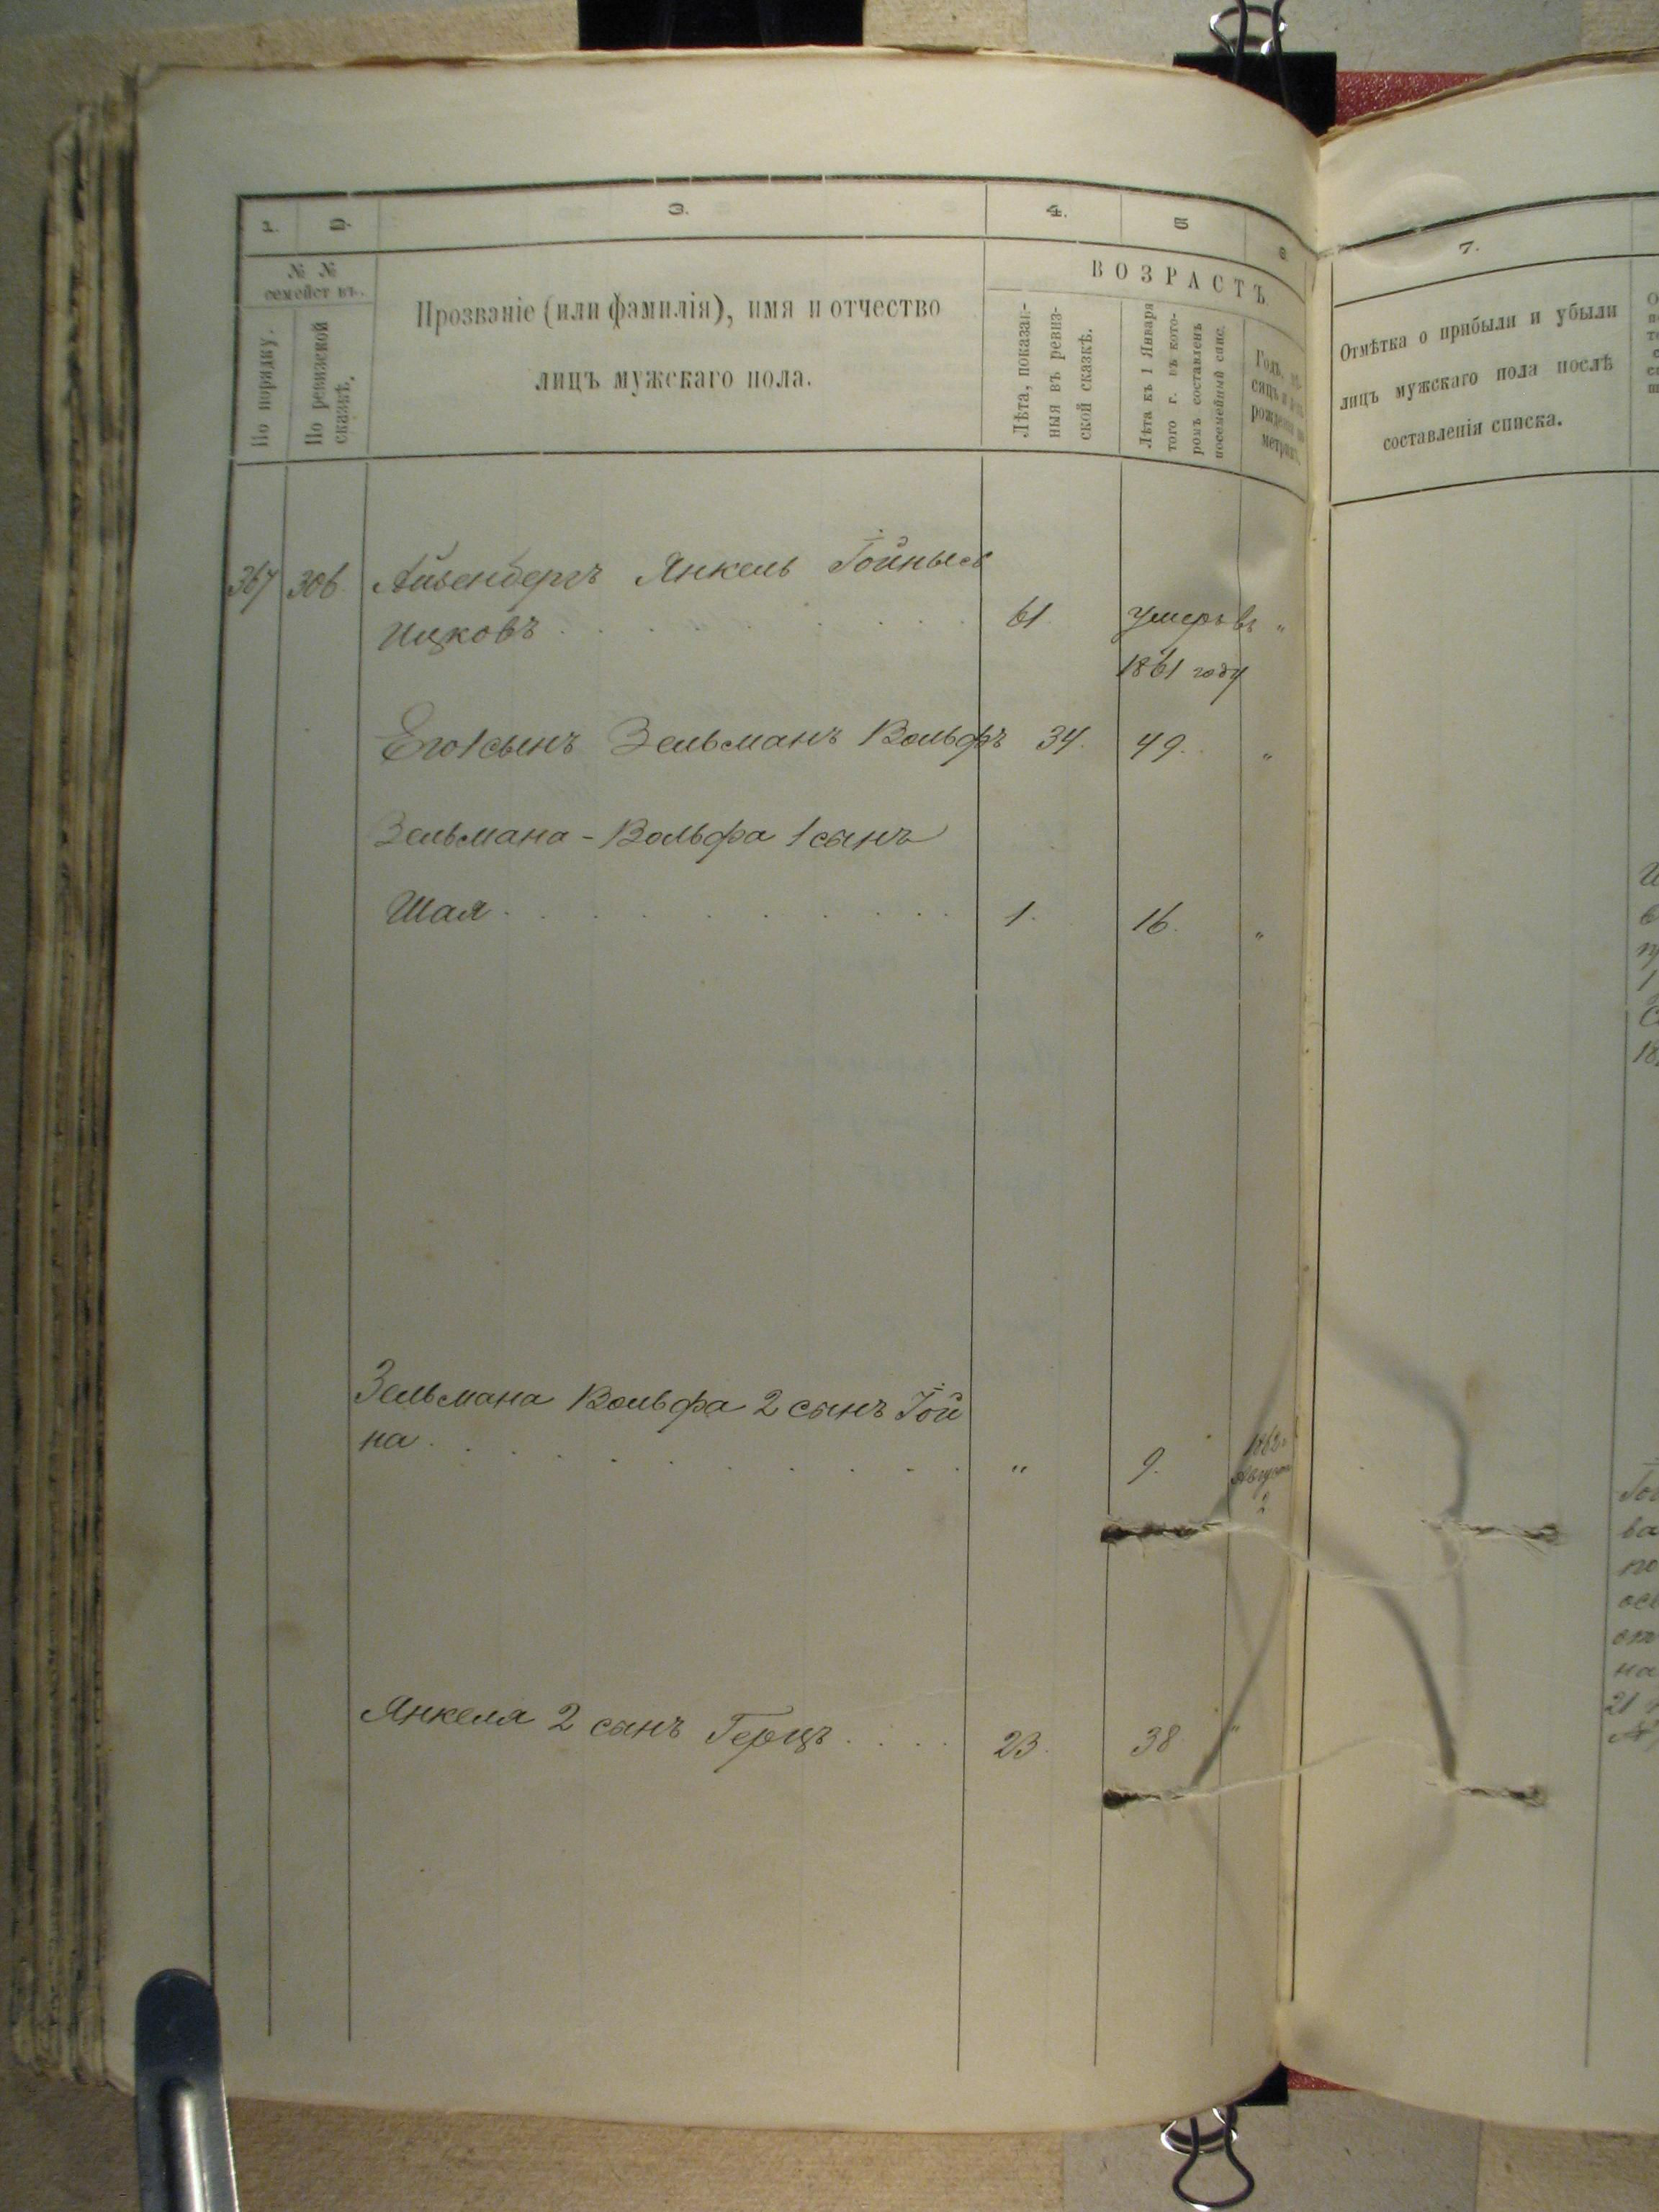 1. 2. 3. 4. 5 6.
№ №
семействъ.
По порядку.
По ревизской
сказкѣ.
Прозваніе (или фамилія), имя и отчество
лицъ мужскаго пола.
ВОЗРАСТЪ.
Лѣта, показан-
ныя въ ревиз-
ской сказкѣ.
Лѣта къ 1 Января
того г. въ кото-
ромъ составленъ
посемейный спис.
Годъ, мѣ-
сяцъ и день
рожденія по
метрикѣ.
367 306 Айзенбергъ Янкель Іойнысь
Ицковъ 61. умеръ въ "
1861 году
Его 1 сынъ Зельманъ Вольфъ 34. 49. "
Зельмана - Вольфа 1 сынъ
Шая 1. 16. "
Зельмана Вольфа 2 сынъ Іой
на " 9. 1862
Августа
2
Янкеля 2 сынъ Герцъ 23. 38 "
7.
Отмѣтка о прибыли и убыли
лицъ мужскаго пола послѣ
составленія списка.